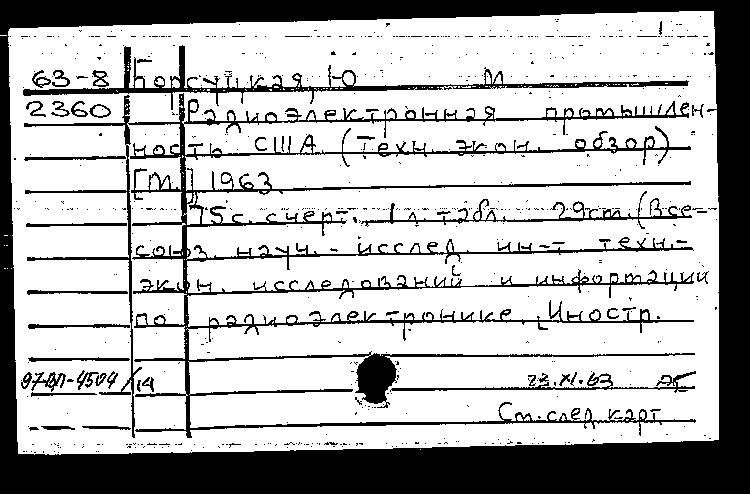 63-8 Борсуцкая, Ю М
2360 Радиоэлектронная промышлен-
ность США (Техн. экон. обзор)
[М.] 1963.
75с. с черт., 1 л. табл. 29см. (Все-
союз. науч.-исслед. ин-т техн.-
экон. исследований и информации
по радиоэлектронике. Иностр.
23.XI.63
См. след. карт